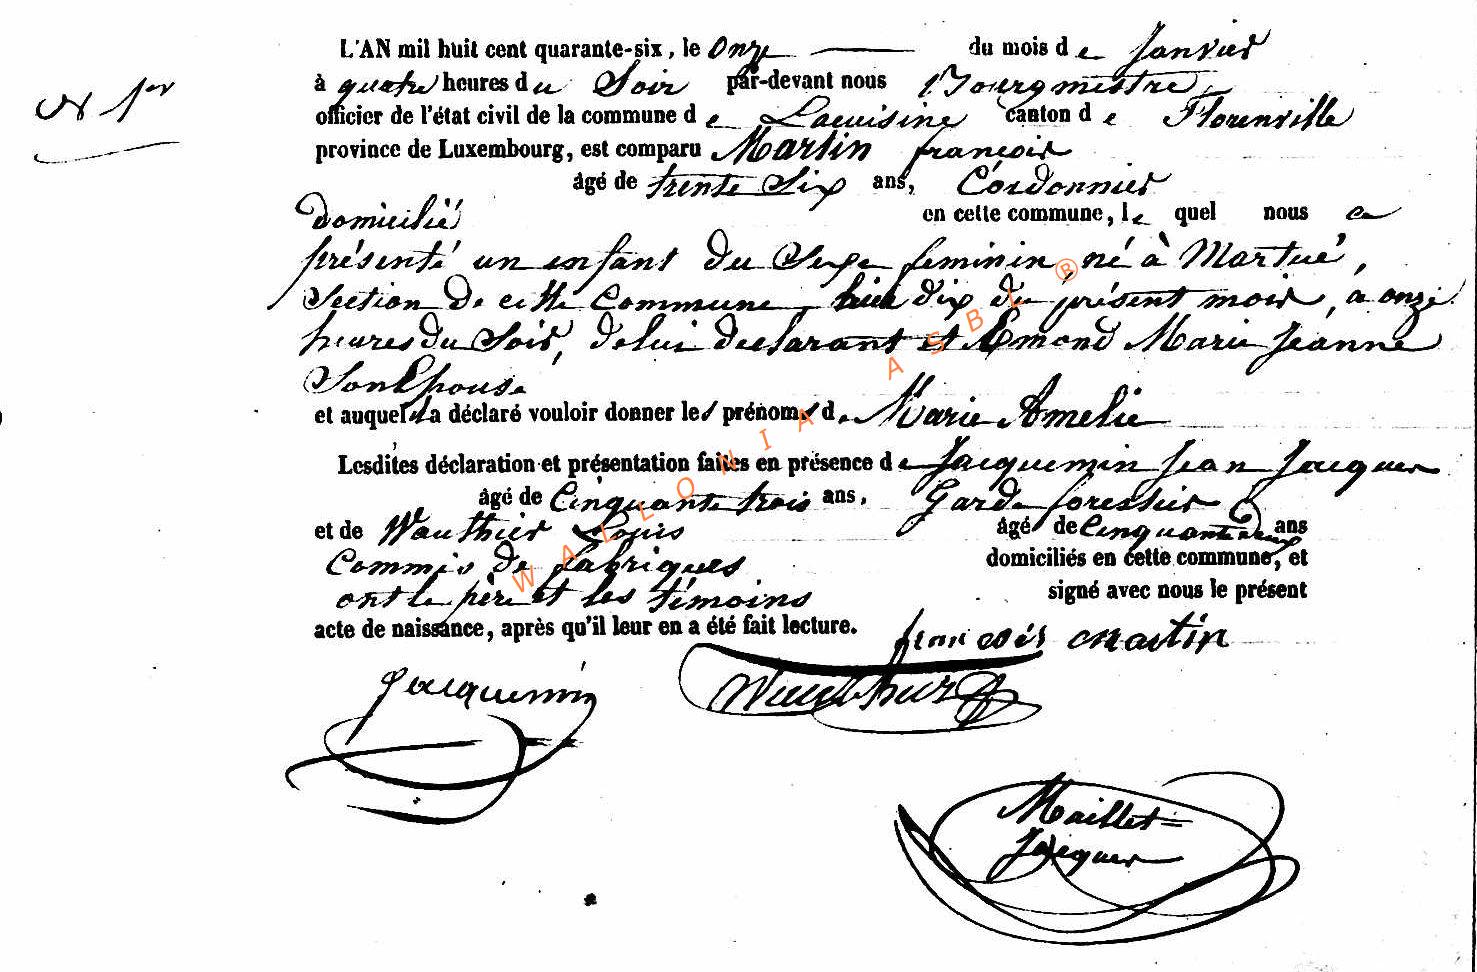 N 1er
L'AN mil huit cent quarante-six, le Onze du mois de Janvier
à quatre heures du Soir par-devant nous Bourgmestre,
officier de l'état civil de la commune de Lacuisine canton de Florenville
province de Luxembourg, est comparu Martin françois
âgé de trente Six ans, Cordonnier
domicilié en cette commune, le quel nous a
présenté un enfant du Sexe feminin, né à Martué,
Section de cette Commune, hier dix du présent mois, à onze
heures du Soir, de lui declarant et Emond Marie Jeanne
Son Epouse
et auquel il a déclaré vouloir donner les prénoms de Marie Amelie
Lesdites déclaration et présentation faites en présence de Jacquemin Jean Jacques
âgé de Cinquante trois ans, Garde forestier
et de Wauthier Louis âgé de Cinquante deux ans
Commis de fabriques domiciliés en cette commune, et
ont le père et les témoins signé avec nous le présent
acte de naissance, après qu'il leur en a été fait lecture.
françois martin
Jacquemin Wauthier
Maillet
Jacques
WALLONIA ASBL ®